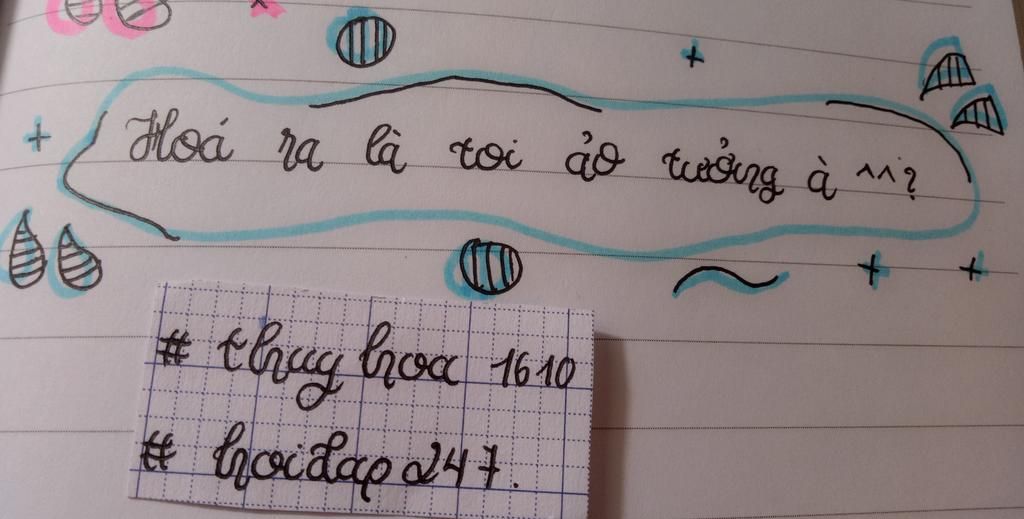 Hoá ra là toi ảo tưởng à ^^?
# thuy hoa 1610
# hoidap247.